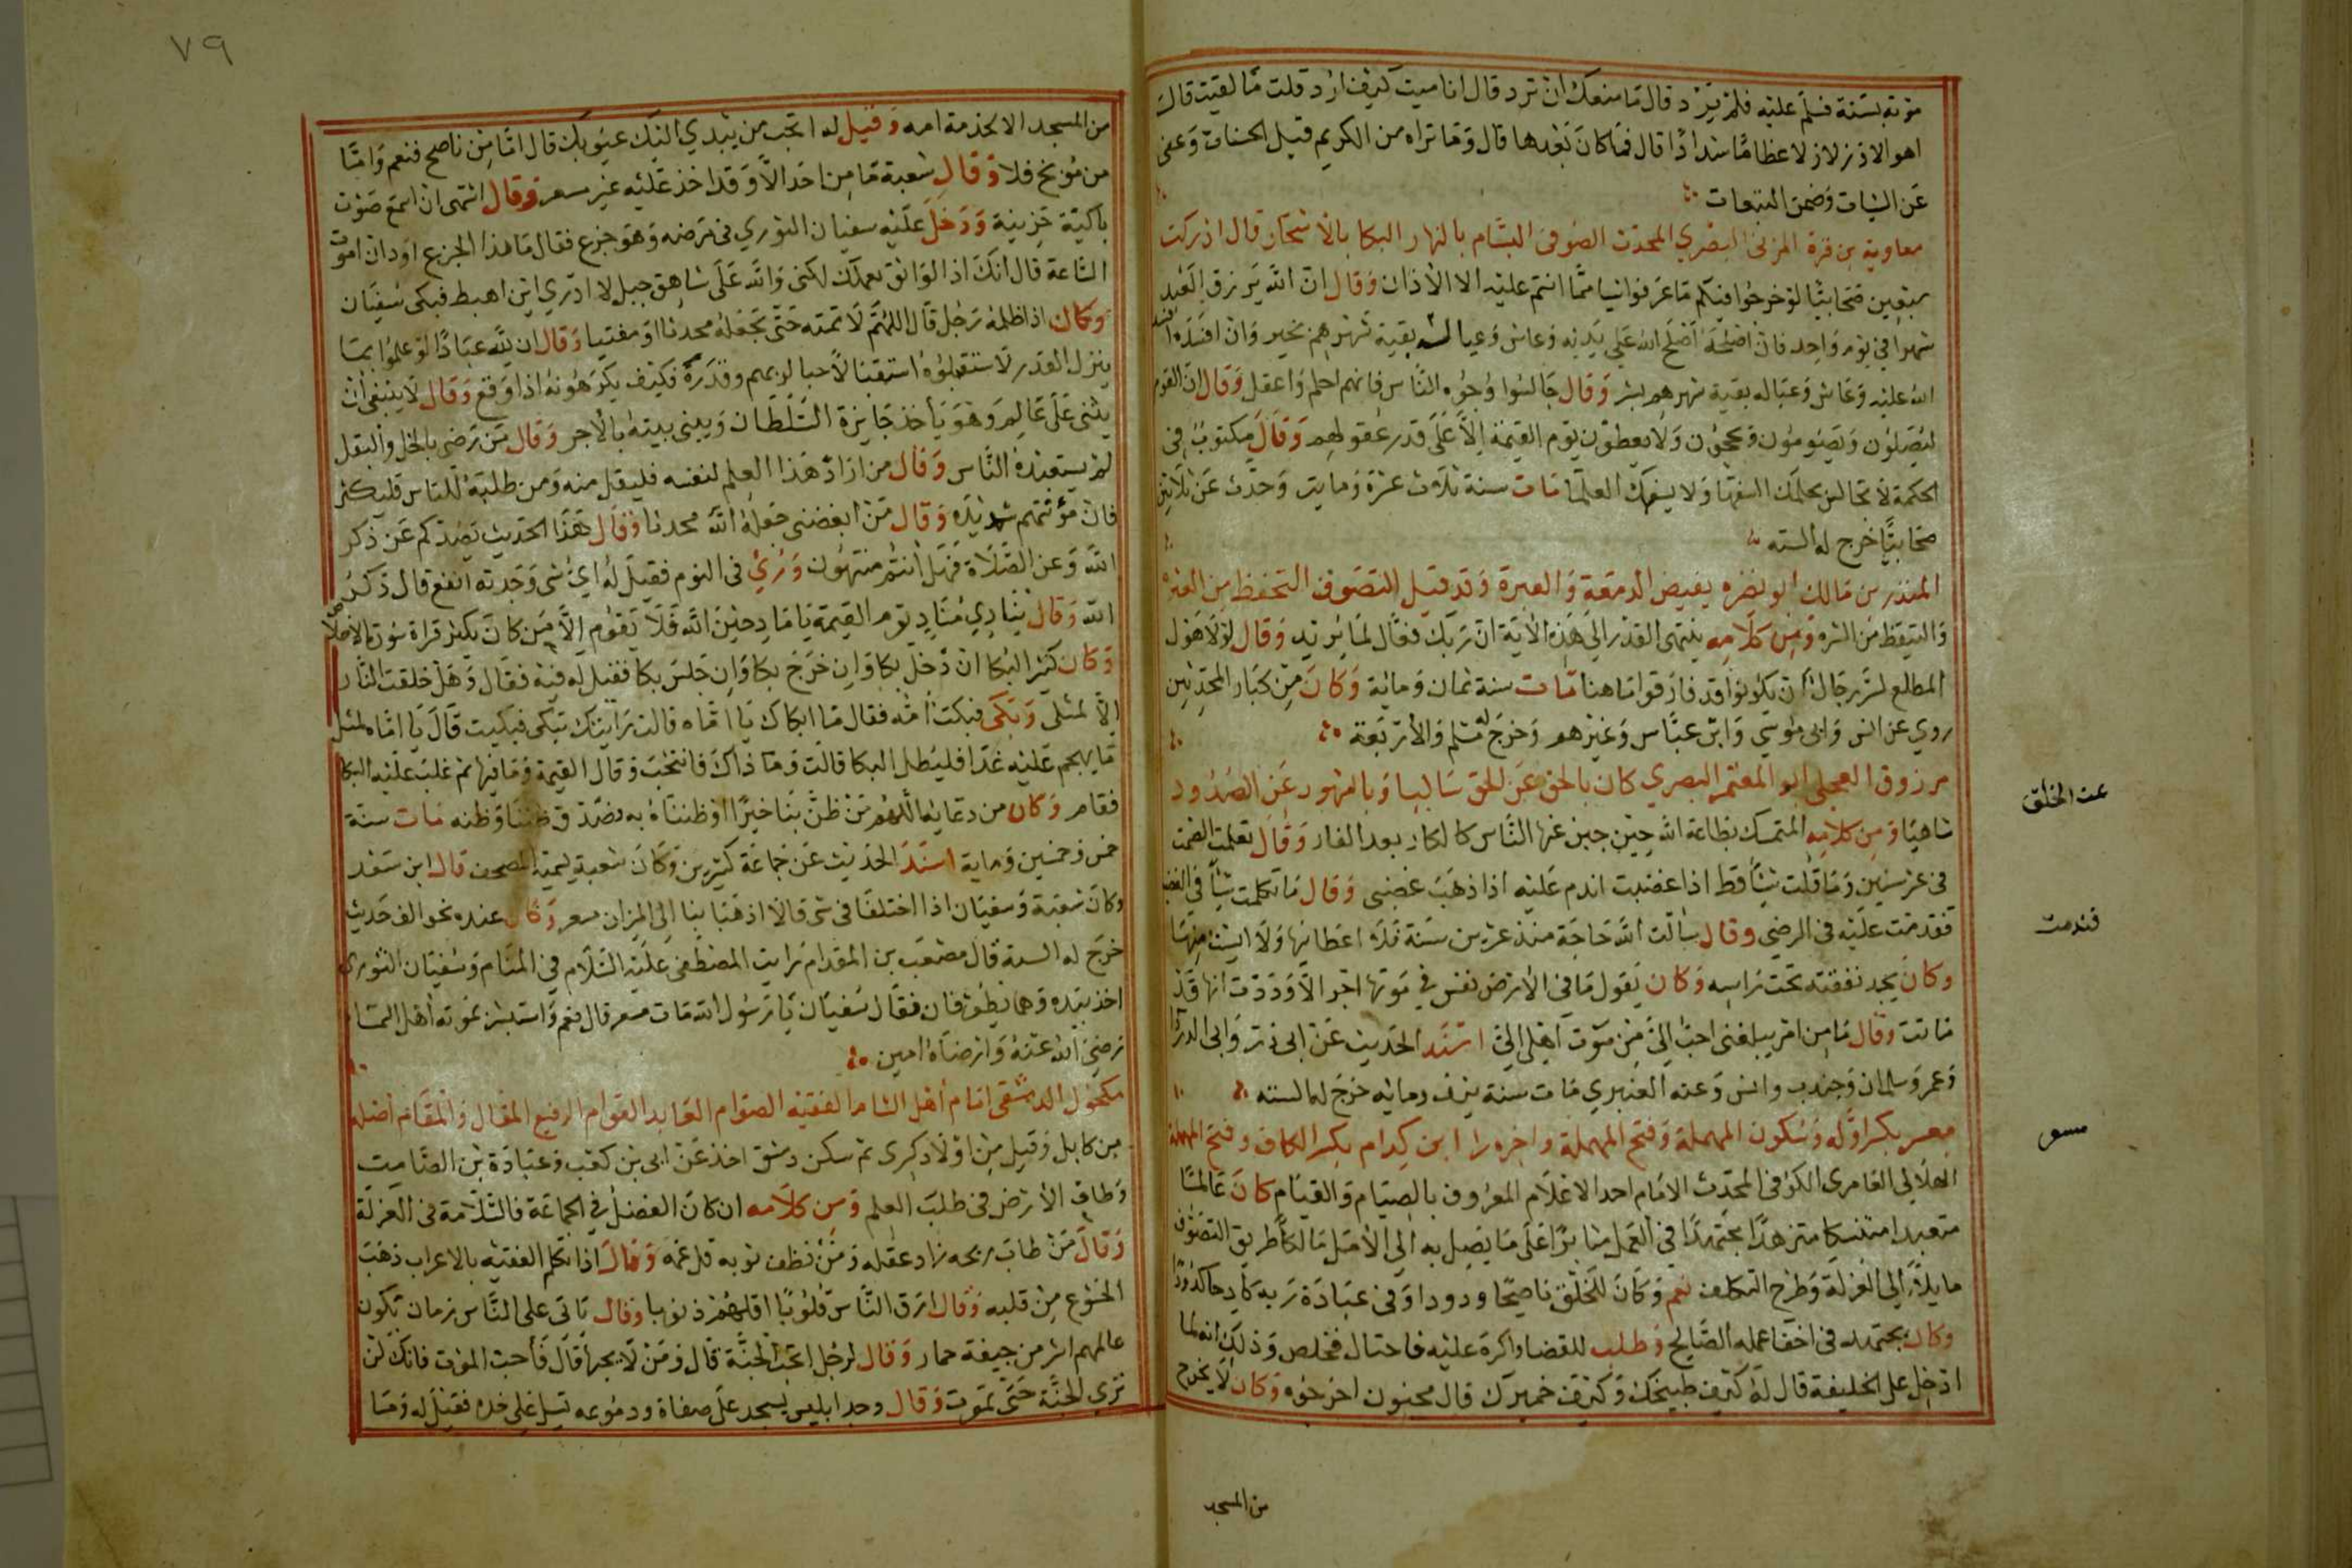 موته بسنة فسلم عليه فلم يرد قال ما منعك ان ترد قال انا ميت كيف ارد قلت ما لقيت قال
اهوالا وزلازل عظاما شدادا قال فما كان بعدها قال وما تراه من الكريم قبل الحسنات وعفى
عن السيات وضمن التبعات
معاوية بن قرة المزني البصري المحدث الصوفى البسّام بالنهار البكا بالاسحار قال ادركت
سبعين صحابيّا لو خرجوا فيكم ما عرفوا شيا ممّا انتم عليه الا الاذان وقال ان الله يرزق العبد
شهرا في يوم واحد فان اصلحه اصلح الله على يديه وعاش وعياله بقية شهرهم بخير وان افسده افسد
الله عليه وعاش وعياله بقية شهرهم بشر وقال جالسوا وجوه الناس فانهم احلم واعقل وقال ان القوم
ليصلون ويصومون ويحجون ولا يعطون يوم القيمة الا على قدر عقولهم وقال مكتوب فى
الحكمة لا تجالس بحلمك السفها ولا بسفهك العلما مات سنة ثلاث عشرة وماية وحدث عن ثلاثين
صحابيّا خرج له الستة
المنذر بن مالك ابو نضره يفيض الدمعة والعبرة وقد قيل التصوف التحفظ من
والتيقظ من الشره ومن كلامه ينتهى القدر الى هذه الاية ان ربك فعّال لما يريد وقال لولا هول
المطلع لسر رجال ان يكونوا قد فارقوا ما هنا مات سنة ثمان وماية وكان من كبار المحدثين
روي عن انس وابى موسى وابن عبّاس وغيرهم وخرج له مسلم والاربعة
مورق العجلى ابو المعتمر البصري كان بالحق عن للخلق ساليا وبالشهود عن الصدود
ساهيا ومن كلامه المتمسك بطاعة الله حين جبن عنها الناس كالكار بعد الفار وقال تعلمت الصمت
فى عشر سنين وما قلت شيأ قط اذا غضبت اندم عليه اذا ذهب غضبى وقال ما تكلمت شيأ في الغضب
فقدمت عليه فى الرضى وقال سالت الله حاجة منذ عشرين سنة فلا اعطانيها ولا ايست منها
وكان يجد نفقته تحت راسه وكان يقول ما فى الارض نفس في موتها اجر الا وددت انها قد
ماتت وقال ما من امر يبلغنى احب الىّ من موت اهلى الىّ اسند الحديث عن ابى ذر وابى الدردا
وعمر وسلمان وجندب وانس وعنه العنبري مات سنة نيف وماية خرج له الستة
مسعر بكسر اوله وسكون المهملة وفتح المهملة واخره را ابن كدام بكسر الكاف وفتح المهملة
الهلالي العامرى الكوفى المحدث الامام احد الاعلام المعروف بالصيام والقيام كان عالما
متعبدا متنسكا متزهدا مجتهدا في العمل مثابرا على ما يصل به الى الامل مالكا طريق التصوف
مايلا الى العزلة وطرح التكلف نعم وكان للخلق ناصحا ودودا وفى عبادة ربه كادحا كدودا
وكان يجتهد فى اخفا عمله الصالح وطلب للقضا واكره عليه فاحتال فخلص وذلك انه لما
ادخل على الخليفة قال له كيف طبيخك وكيف خميرك قال مجنون اخرجوه وكان لا يخرج
عن الخلق
فندمت
مسعر
من المسجد
٧٩
من المسجد الا لخدمة امه وقيل له اتحب من يبدي اليك عيوبك قال امّا من ناصح فنعم وامّا
من موبخ فلا وقال شعبة ما من احد الا وقد اخذ عليه غير مسعر وقال اشتهى ان اسمع صوت
باكية حزينة ودخل عليه سفيان الثوري فى مرضه وهو جزع فقال ما هذا الجزع اود ان اموت
الساعة قال انك اذا لواثق بعملك لكنى والله على شاهق جبل لا ادري اين اهبط فبكى سفيان
وكان اذا ظلمه رجل قال اللهم لا تمته حتى تجعله محدثا او مفتيا وقال ان لله عبادا لو علموا بما
ينزل القدر لاستقبلوه استقبالا حبا لربهم وقدره فكيف يكرهونه اذا وقع وقال لا ينبغى ان
يثنى على عالم وهو يأخذ جايزة السلطان ويبنى بيته بالاجر وقال من رضى بالخل والبقل
لم يستعبده الناس وقال من اراد هذا العلم لنفسه فليقل منه ومن طلبه للناس فليكثر
فان مؤنتهم شديده وقال من ابغضنى جعله الله محدثا وقال هذا الحديث يصدكم عن ذكر
الله وعن الصلاة فهل انتم منتهون ورئي فى النوم فقيل له اىّ شى وجدته انفع قال ذكر
الله وقال ينادي مناد يوم القيمة يا مادحين الله فلا يقوم الا من كان يكثر قراة سورة الاخلاص
وكان كثير البكا ان دخل بكا وان خرج بكا وان جلس بكا فقيل له فيه فقال وهل خلقت النار
الا لمثلى وبكى فبكت امه فقال ما ابكاك يا امّاه قالت رايتك تبكى فبكيت قال يا امّاه لمثل
ما يهجم عليه غدا فليطل البكا قالت وما ذاك فانتحب وقال القيمة وما فيها ثم غلب عليه البكا
فقام وكان من دعايه اللهم من ظنّ بنا خيرًا او ظنناه به فصدّق ظننا وظنه مات سنة
خمس وخمسين وماية اسند الحديث عن جماعة كثيرين وكان شعبة يسميه المصحف قال ابن سعد
وكان شعبة وسفيان اذا اختلفا فى شى قالا اذهبا بنا الى الميزان مسعر وكان عنده نحو الف حديث
خرج له الستة قال مصعب بن المقدام رايت المصطفى عليه السلام في المنام وسفيان الثوري
اخذ بيده وهما يطوفان فقال سفيان يا رسول الله مات مسعر قال نعم واستبشر بموته اهل السما
رضي الله عنه وارضاه امين
مكحول الدمشقى امام اهل الشام الفقيه الصوّام العابد القوام الرفيع المقال والمقام اصله
من كابل وقيل من اولاد كسرى ثم سكن دمشق اخذ عن ابى بن كعب وعبادة بن الصامت
وطاف الارض فى طلب العلم ومن كلامه ان كان الفضل في الجماعة فالسلامة فى العزلة
وقال من طاب ريحه زاد عقله ومن نظف ثوبه قل غمه وقال اذا تكلم الفقيه بالاعراب ذهب
الخشوع من قلبه وقال ارق الناس قلوبا اقلهم ذنوبا وقال تاتى على الناس زمان تكون
عالمهم اشر من جيفة حمار وقال لرجل اتحب الجنة قال ومن لا يحبها قال فأحب الموت فانك لن
ترى الجنة حتى تموت وقال وجد ابليس يسجد على صفاة ودموعه تسيل على خده فقيل له وما